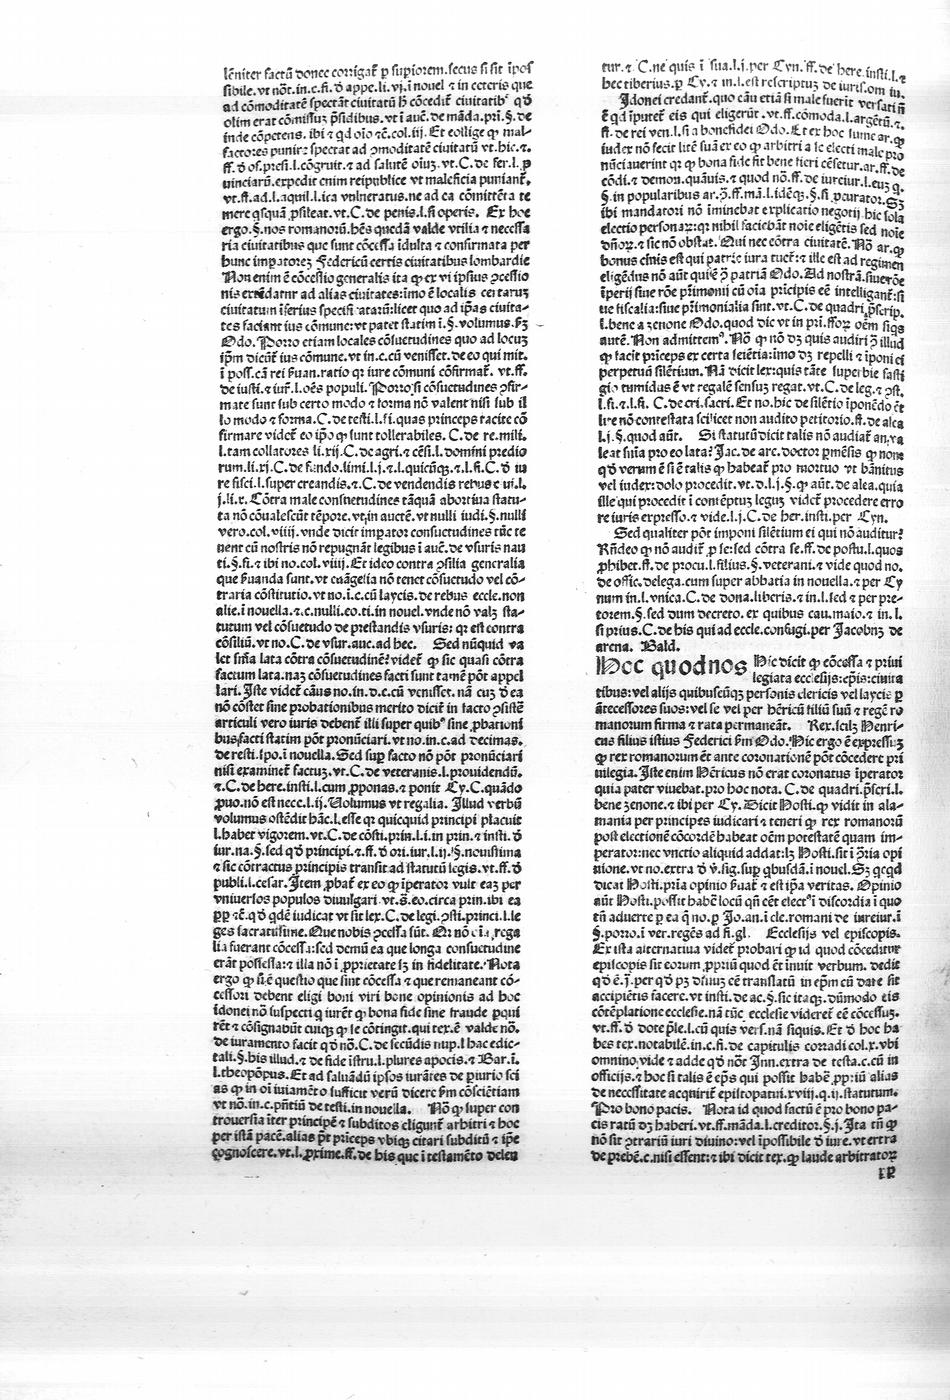 lēniter factū donec corrigat̄ ꝑ supiorem.secus si sit īpos
sibile.vt nōt.in.c.fi.ð appe.li.vj.ī nouel ⁊ in ceteris que
ad cōmoditatē spectāt ciuitatū ħ cōcedit̄ ciuitatibꝰ qð
olim erat cōmissuꝫ p̄sidibus.vt ī auc̄.de māda.pri.§.de
inde cōpetens. ibi ⁊ qð oīo tē.col.iij. Et collige ꝙ mal-
factores punire spectat ad ꝯmoditatē ciuitatū.vt.hic.⁊.
ff.ð of.presi.l.cōgruit.⁊ ad salutē oiuꝫ.vt.C.de fer.l.ꝓ
uinciarū.expedit enim reipublice vt maleficia puniant̄.
vt.ff.ad.l.aquil.l.ita vulneratus.ne ad ea cōmittēta te
mere qsquā ꝓsileat.vt.C.de penis.l.si operis. Ex hoc
ergo.§.nos romanorū.hēs quedā valde vtilia ⁊ necessa
ria ciuitatibus que sunt cōcessa īdulta ⁊ confirmata per
hunc impatoreꝫ Federicū certis ciuitatibus lombardie
Non enim ē cōcessio generalis ita ꝙ ex vi ipsius ꝯcessio
nis extēdatur ad alias ciuitates:imo ē localis certaruꝫ
ciuitatum īferius specifi catarū:licet quo ad ip̄as ciuita-
tes faciant ius cōmune:vt patet statim ī.§.volumus.ẜꝫ
Odo. Porro etiam locales cōsuetudines quo ad locuꝫ
ip̄m dicūt̄ ius cōmune.vt in.c.cū venisset.de eo qui mit.
ī poss.cā rei ẜuan.ratio qr iure cōmuni cōfirmat̄. vt.ff.
de iusti.⁊ iur̄.l.oēs populi. Porro si cōsuetudines ꝯfir-
mate sunt sub certo modo ⁊ forma nō valent nisi sub il
lo modo ⁊ forma.C.de testi.l.fi.quas princeps tacite cō
firmare videt̄ eo ip̄o ꝙ sunt tollerabiles. C.de re.mili.
l.tam collatores li.xij.C.de agri.⁊ cēsi.l.domini predio
rum.li.xj.C.de fundo.limi.l.j.⁊.l.quicūqꝫ.⁊.l.fi.C.ð iu
re fisci.l.super creandis.⁊.C.de vendendis rebus c ui.l.
j.li.x. Cōtra male consuetudines tāquā abortiua statu-
ta nō cōualescūt tēpore.vt in auctē.vt nulli iudi.§.nulli
vero.col.viiij. vnde dicit impator consuetudines tūc te
nent cū nostris nō repugnāt legibus ī auc̄.de vsuris nau
ti.§.fi.⁊ ibi no.col.viij. Et ideo contra ꝯsilia generalia
que ẜuanda sunt.vt euāgelia nō tenet cōsuetudo vel cō-
traria cōstitutio.vt no.ī.c.cū laycis.de rebus eccle.non
alie.ī nouella.⁊.c.nulli.eo.ti.in nouel.vnde nō valꝫ sta-
tutum vel cōsuetudo de prestandis vsuris: qr est contra
cōsiliū.vt no.C.de vsur.auc.ad hec. Sed nūquid va
let sn̄ia lata cōtra cōsuetudinē?videt̄ ꝙ sic quasi cōtra
factum lata.naꝫ cōsuetudines facti sunt tamē pōt appel
lari. Iste videt̄ casus no.in.d.c.cū venisset. nā cuꝫ ð ea
nō cōstet sine probationibus merito dicit̄ in facto ꝯsistē
articuli vero iuris debent̄ illi super quibꝰ sine ꝓbationi
bus facti statim pōt pronūciari.vt no.in.c.ad decimas.
de resti.spo.ī nouella. Sed sup facto nō pōt pronūciari
nisi examinet̄ factuꝫ.vt.C.de veteranis.l.prouidendū.
⁊.C.de here.insti.l.cum ꝓponas.⁊ ponit Cy.C.quādo
ꝓuo.nō est necc.l.ij. Uolumus vt regalia. Illud verbū
volumus ostēdit hāc.l.esse qr quicquid principi placuit
l.habet vigorem.vt.C.de cōsti.prin.l.i.in prin.⁊ insti.ð
iur.na.§.sed qð principi.⁊.ff.ð ori.iur.l.ij.§.nouissima
⁊ sic cōtractus principis transit ad statutū legis.vt.ff.ð
publi.l.cesar. Item ꝓbat̄ ex eo ꝙ īperator vult eaꝫ per
vniuersos populos diuulgari.vt.s̄.eo.circa prin.ibi ea
ꝓp tē.qð qdē iudicat vt sit lex.C.de legi.ꝯsti.princi.l.le
ges sacratissime. Que nobis ꝯcessa sūt. Qr nō erāt rega
lia fuerant cōcessa:sed demū ea que longa consuetudine
erāt possessa:⁊ illa nō ī ꝓprietate sꝫ in fidelitate. Nota
ergo ꝙ si ē questio que sint cōcessa ⁊ que remaneant cō-
cessori debent eligi boni viri bone opinionis ad hoc
idonei nō suspecti q iurēt ꝙ bona fide sine fraude ꝓqui
rēt ⁊ cōsignabūt cuiqꝫ ꝙ se cōtingit.qui tex.ē valde nō.
de iuramento facit qð nō.C.de secūdis nup.l.hac edic-
tali.§.his illud.⁊ de fide īstru.l.plures apocis.⁊ Bar.ī.
l.theopōpus. Et ad saluādū ipsos iurātes de ꝑiurio sci
as ꝙ in oī iuramēto sufficit verū dicere ẜm cōsciētiam
vt nō.in.c.p̄ntiū de testi.in nouella. Nō ꝙ super con
trouersia īter principē ⁊ subditos eligunt̄ arbitri ⁊ hoc
per istā pacē.alias pōt p̄iceps vbiqꝫ citari subditū ⁊ ip̄e
cognoscere.vt.l.ꝓxime.ff.de his que ī testamēto delen
tur.⁊ C.ne quis ī sua.l.j.per Cyn.ff.de here.insti.l.⁊
hec tiberius.ꝑ Cy.⁊ in.l.est rescriptuꝫ de iuris.om iu.
Idonei credant̄.quo cāu etiā si male fuerit versati n̄
ē qð īputet̄ eis qui eligerūt.vt.ff.cōmoda.l.argētū.⁊.
ff.de rei ven.l.si a bonefidei Odo. Et ex hoc sume ar.ꝙ
iudex nō fecit litē suā ex eo ꝙ arbitri a se electi male pro
nūciauerint qr ꝙ bona fide fit bene fieri cēsetur.ar.ff.de
cōdi.⁊ demon.quāuis.⁊ quod nō.ff.de iureiur.l.eius q.
§.in popularibus ar.ꝯ.ff.mā.l.idēqꝫ.§.si ꝓcurator. Sꝫ
ibi mandatori nō iminebat explicatio negotij.hic sola
electio personaꝝ:qr nihil faciebāt noīe eligētis sed noīe
dn̄oꝝ.⁊ sic nō obstat. Qui nec cōtra ciuitatē. Nō ar.ꝙ
bonus ciuis est qui patrie iura tuet̄:⁊ ille est ad regimen
eligēdus nō aūt qui ē ꝯ patriā Odo. Ad nostrā.siue rōe
īperij siue rōe p̄rimonij cū oīa p̄ricipis eē intelligant̄:si
ue fiscalia:siue p̄rimonialia sint.vt.C.de quadri.p̄scrip.
l.bene a ꝫenone Odo.quod dic vt in pri.ffoꝝ oēm siqs
autē. Non admittemꝰ. Nō ꝙ nō dꝫ quis audiri ꝯ illud
ꝙ facit p̄riceps ex certa sciētia:imo dꝫ repelli ⁊ īponi ei
perpetuū silētium. Nā dicit lex:quis tāte superbie fasti
gio tumidus ē vt regalē sensuꝫ regat.vt.C.de leg.⁊ ꝯst.
l.fi.⁊.l.fi. C.de cri.sacri. Et no.hic de silētio īponēdo ēt
lite nō contestata scilicet non audito petitorio.ff.de alea
l.j.§.quod aūt. Si statutū dicit talis nō audiat̄ an.va
leat sn̄ia pro eo lata? Jac.de are.doctor ꝑmēsis ꝙ nom
qð verum ē si ē talis ꝙ habeat̄ pro mortuo vt bānitus
vel iudex:dolo procedit.vt.d.l.j.§.ꝙ aūt.de alea.quia
ille qui procedit ī contēptuꝫ leguꝫ videt̄ procedere erro
re iuris expresso.⁊ vide.l.j.C.de her.insti.per Cyn.
Sed qualiter pōt imponi silētium ei qui nō auditur?
Rn̄deo ꝙ nō audit̄ ꝑ se:sed cōtra se.ff.de postu.l.quos
ꝓhibet.ff.de procu.l.filius.§.veterani.⁊ vide quod no.
de offic.delega.cum super abbatia in nouella.⁊ per Cy
num in.l.vnica.C.de dona.liberis.⁊ in.l.sed ⁊ per pre-
torem.§.sed dum decreto. ex quibus cau.maio.⁊ in.l.
si prius.C.de his qui ad eccle.confugi.per Jacobuꝫ de
arena. Bald.
Hec quod nos Hic dicit ꝙ cōcessa ⁊ priui
legiata ecclesijs:ep̄is:ciuita
tibus:vel alijs quibuscūqꝫ personis clericis vel laycis ꝑ
ātecessores suos:vel se vel per hēricū filiū suū ⁊ regē ro
manorum firma ⁊ rata permaneāt. Rex.scilꝫ Henri-
cus filius istius Federici ẜm Odo. Hic ergo ē expressuꝫ
ꝙ rex romanorum ēt ante coronationē pōt cōcedere pri
uilegia. Iste enim Hēricus nō erat coronatus īperator
quia pater viuebat.pro hoc nota. C.de quadri.p̄scri.l.
bene ꝫenone.⁊ ibi per Cy. Dicit Hosti.ꝙ vidit in ala-
mania per principes iudicari ⁊ teneri ꝙ rex romanorū
post electionē cōcordē habeat oēm potestatē quam im-
perator:nec vnctio aliquid addat:lꝫ Hosti.sit ī ꝯria opi
nione.vt no.extra ð v̄.sig.sup qbusdā.ī nouel. Sꝫ qcqd
dicat Hosti.pria opinio ẜuat̄ ⁊ est ip̄a veritas. Opinio
aūt Hosti.possit habē locū qn̄ cēt electꝰ ī discordia ī quo
tn̄ aduerte ꝑ ea q̄ no.ꝑ Jo.an.ī cle.romani de iureiur.ī
§.porro.ī ver.regēs ad fi.gl. Ecclesijs vel episcopis.
Ex ista alternatiua videt̄ probari ꝙ id quod cōceditur
episcopis sit eorum ꝓpriū quod ēt innuit verbum. dedit
qð ē.j̄.per qð pꝫ dn̄iuꝫ cē translatū in ep̄m cū dare sit
accipiētis facere.vt insti.de ac.§.sic itaqꝫ.dūmodo eis
cōtēplatione ecclesie.nā tūc ecclesie videret̄ cē cōcessuꝫ.
vt.ff.ð dote p̄le.l.cū quis vers.nā siquis. Et ð hoc ha
bes tex.notabilē.in.c.fi.de capitulis corradi col.x.vbi
omnino vide ⁊ adde qð nōt Inn.extra de testa.c.cū in
officijs.⁊ hoc si talis ē ep̄s qui possit habē ꝓpriū alias
de necessitate acquirit̄ episcopatui.xviij.q.ij.statutum.
Pro bono pacis. Nota id quod factū ē pro bono pa-
cis ratū dꝫ haberi.vt.ff.māda.l.creditor.§.j. Ita tn̄ ꝙ
nō sit ꝯtrariū iuri diuino:vel īpossibile ð iure.vt extra
de prebē.c.nisi essent:⁊ ibi dicit tex.ꝙ laude arbitratoꝝ
ip